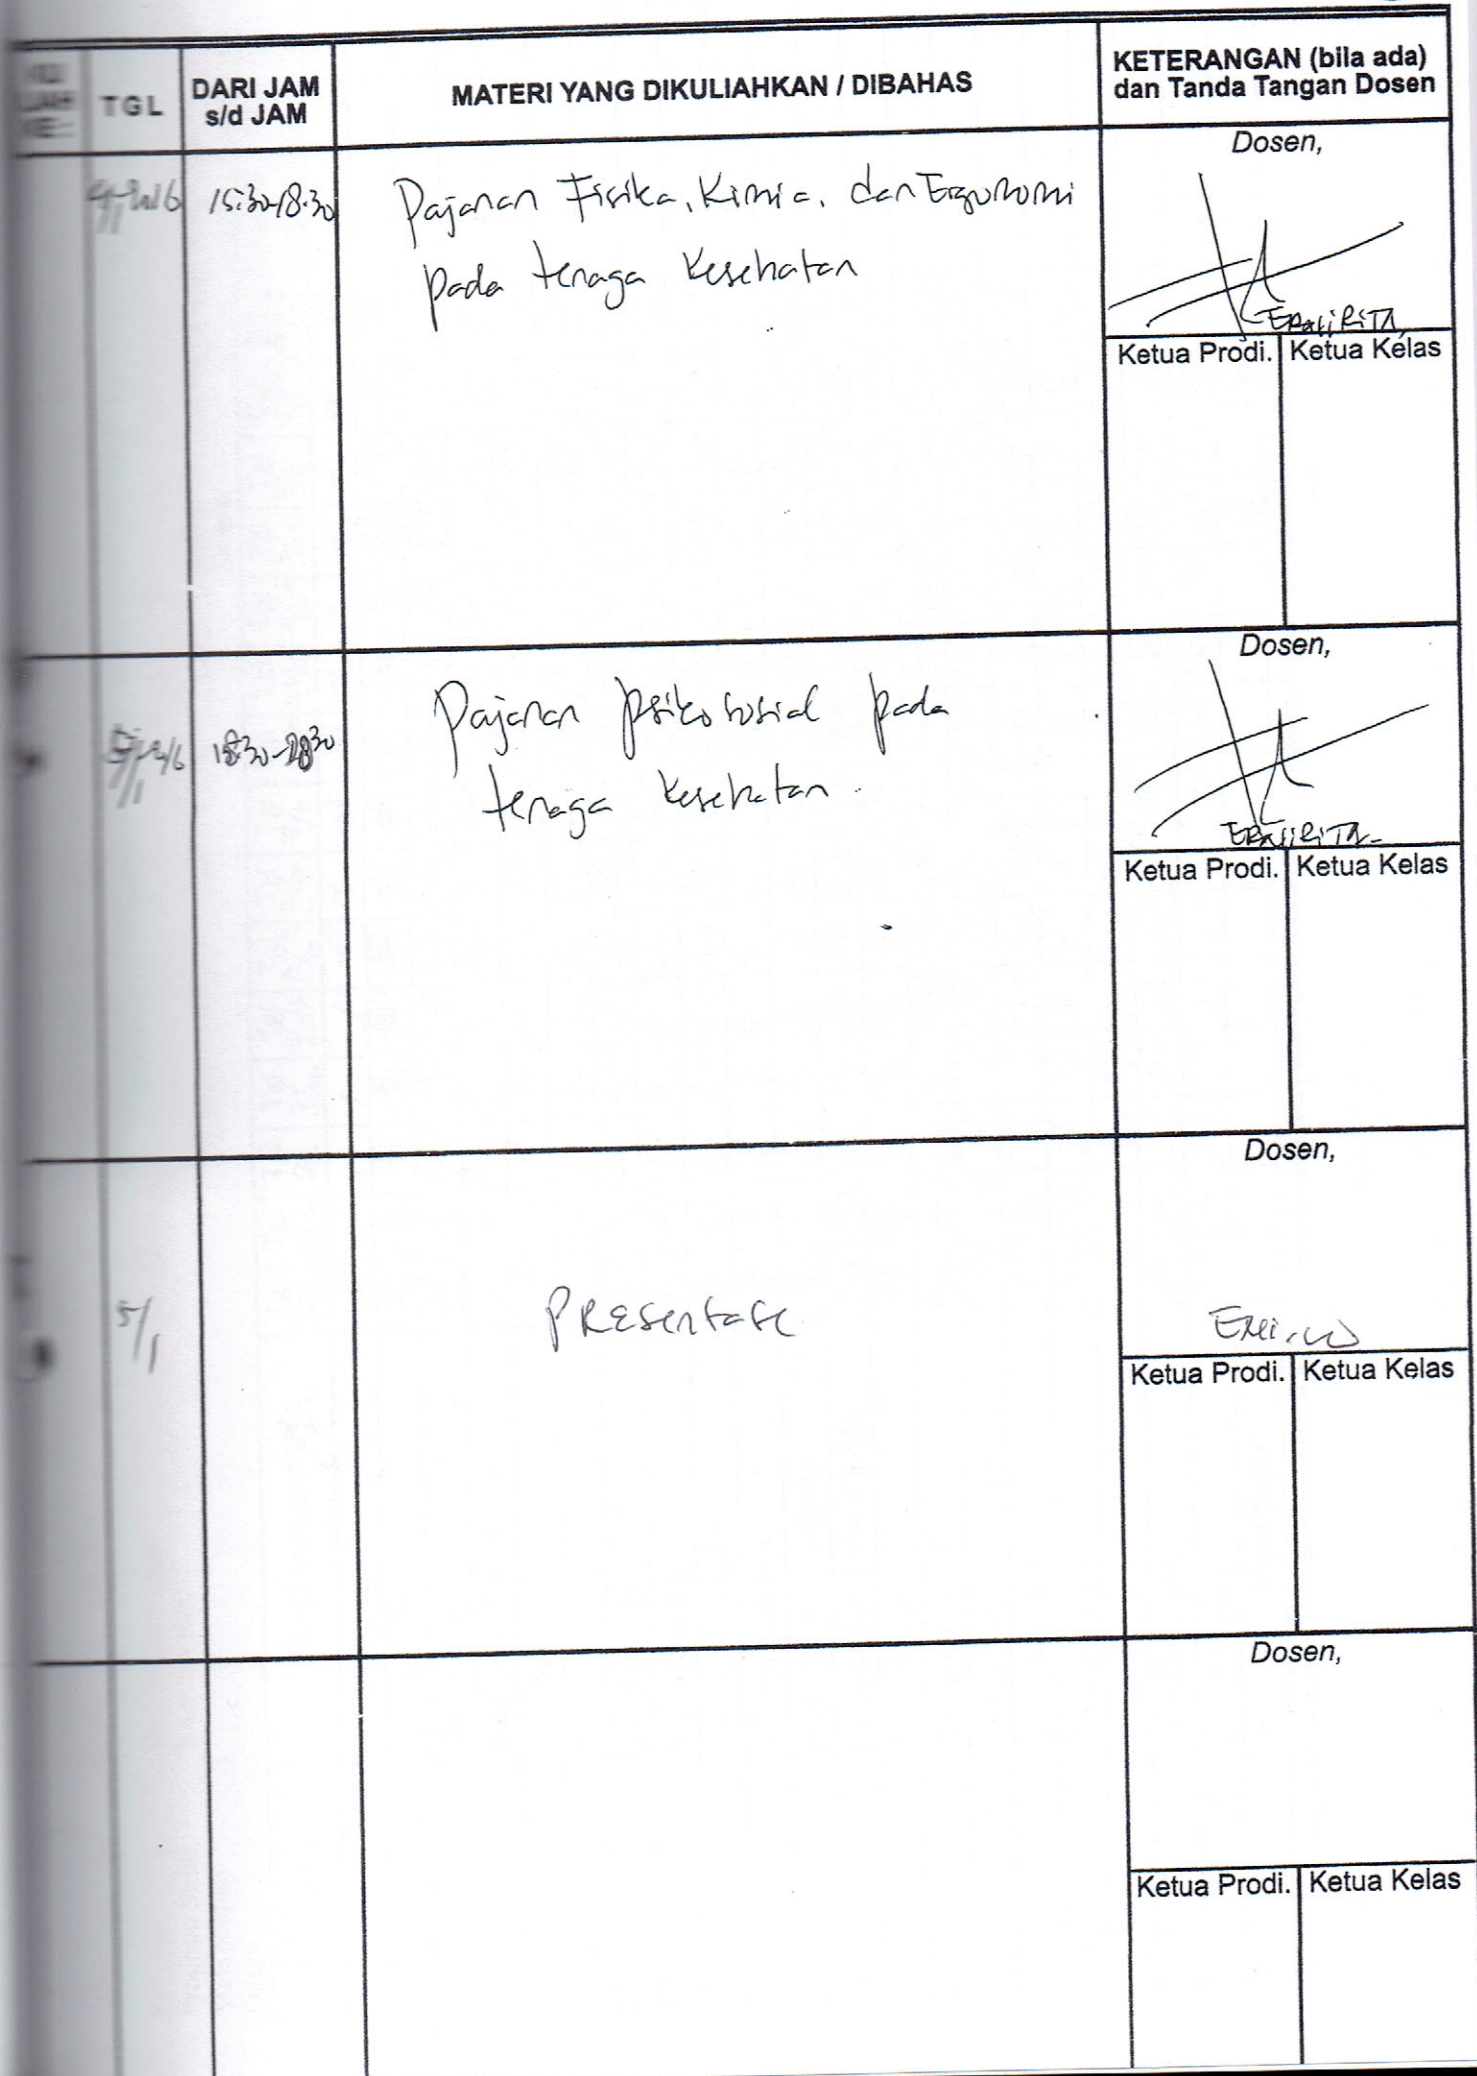 TGL
DARI JAM
s/d JAM
MATERI YANG DIKULIAHKAN / DIBAHAS
KETERANGAN (bila ada)
dan Tanda Tangan Dosen
Dosen,
15:30-18.30
Pajanan Fisika, Kimia, dan Ergonomi
pada tenaga Kesehatan
ERNIRITA
Ketua Prodi. Ketua Kelas
Dosen,
Pajanan psikososial pada
tenaga Kesehatan.
ERNIRITA
Ketua Prodi. Ketua Kelas
Dosen,
5/1
PRESentase
Ketua Prodi. Ketua Kelas
Dosen,
Ketua Prodi. Ketua Kelas